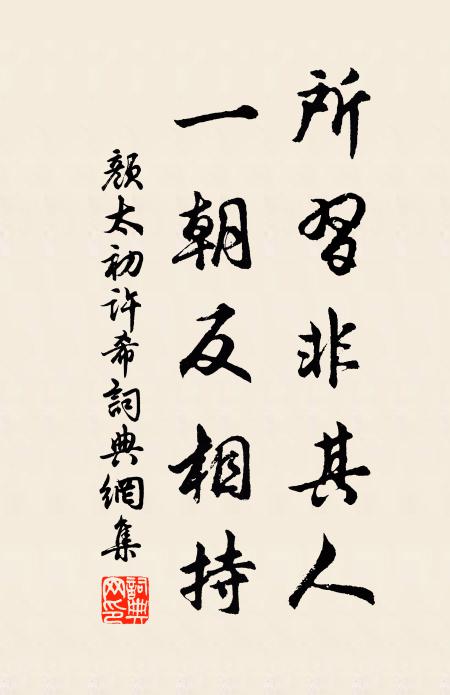 所習非其人
一朝反相持
顏太初許希詞典網集
詞典網印